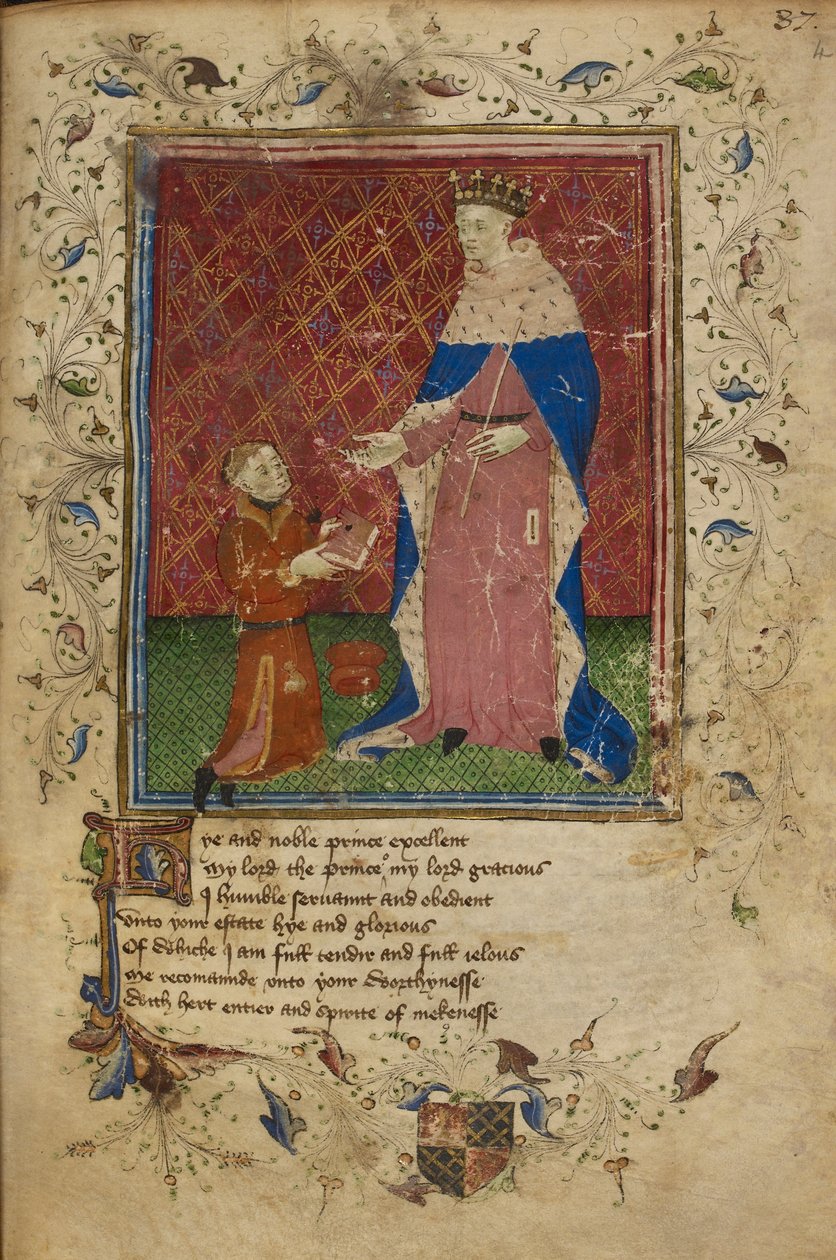 37.
4
Hye and noble prince excellent
My lord the prince o my lord gracious
I humble seruaunt and obedient
Unto your estate hye and glorious
Of whiche I am full tendir and full ielous
Me recomaunde unto your worthynesse
With hert entier and spirite of mekenesse